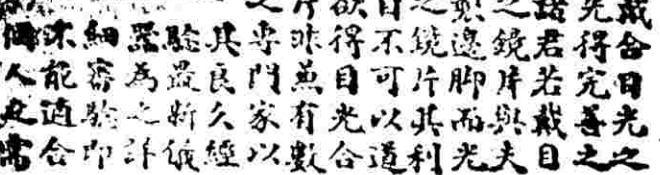 或合目光之
先得完善之
諸君若戴目
之鏡片與夫
類邊脚而光
之鏡片其利
日不可以道
欲得目光合
片非兼有數
之專門家以
其良久經
驗最新儀
器為之詳
細審驗即
未能適合
個人之需